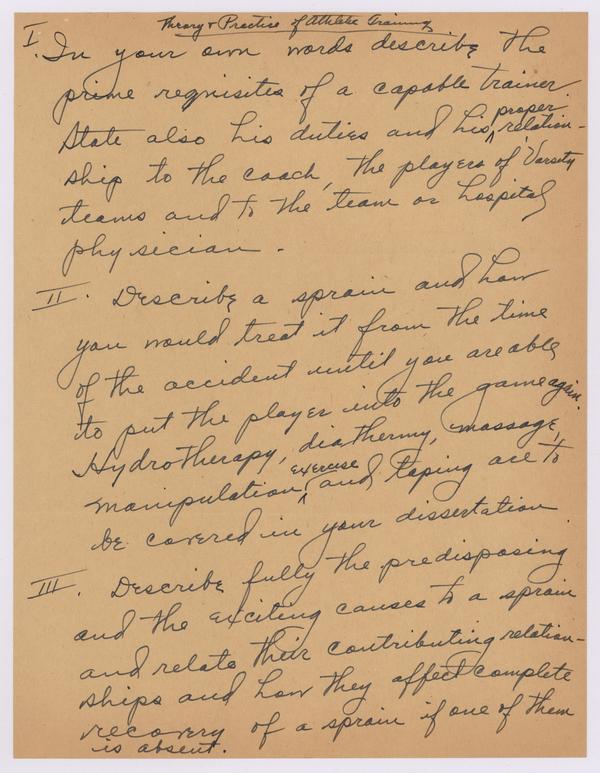 Theory & Practise of Athletic Training
I. In your own words describe the
prime requisites of a capable trainer.
State also his duties and his proper relation-
ship to the coach, the players of Varsity
teams and to the team or hospital
physician.
II. Describe a sprain and how
you would treat it from the time
of the accident until you are able
to put the player into the game again.
Hydrotherapy, diathermy, massage,
manipulation, exercise and taping are to
be covered in your dissertation.
III. Describe fully the predisposing
and the exciting causes to a sprain
and relate their contributing relation-
ships and how they affect complete
recovery of a sprain if one of them
is absent.